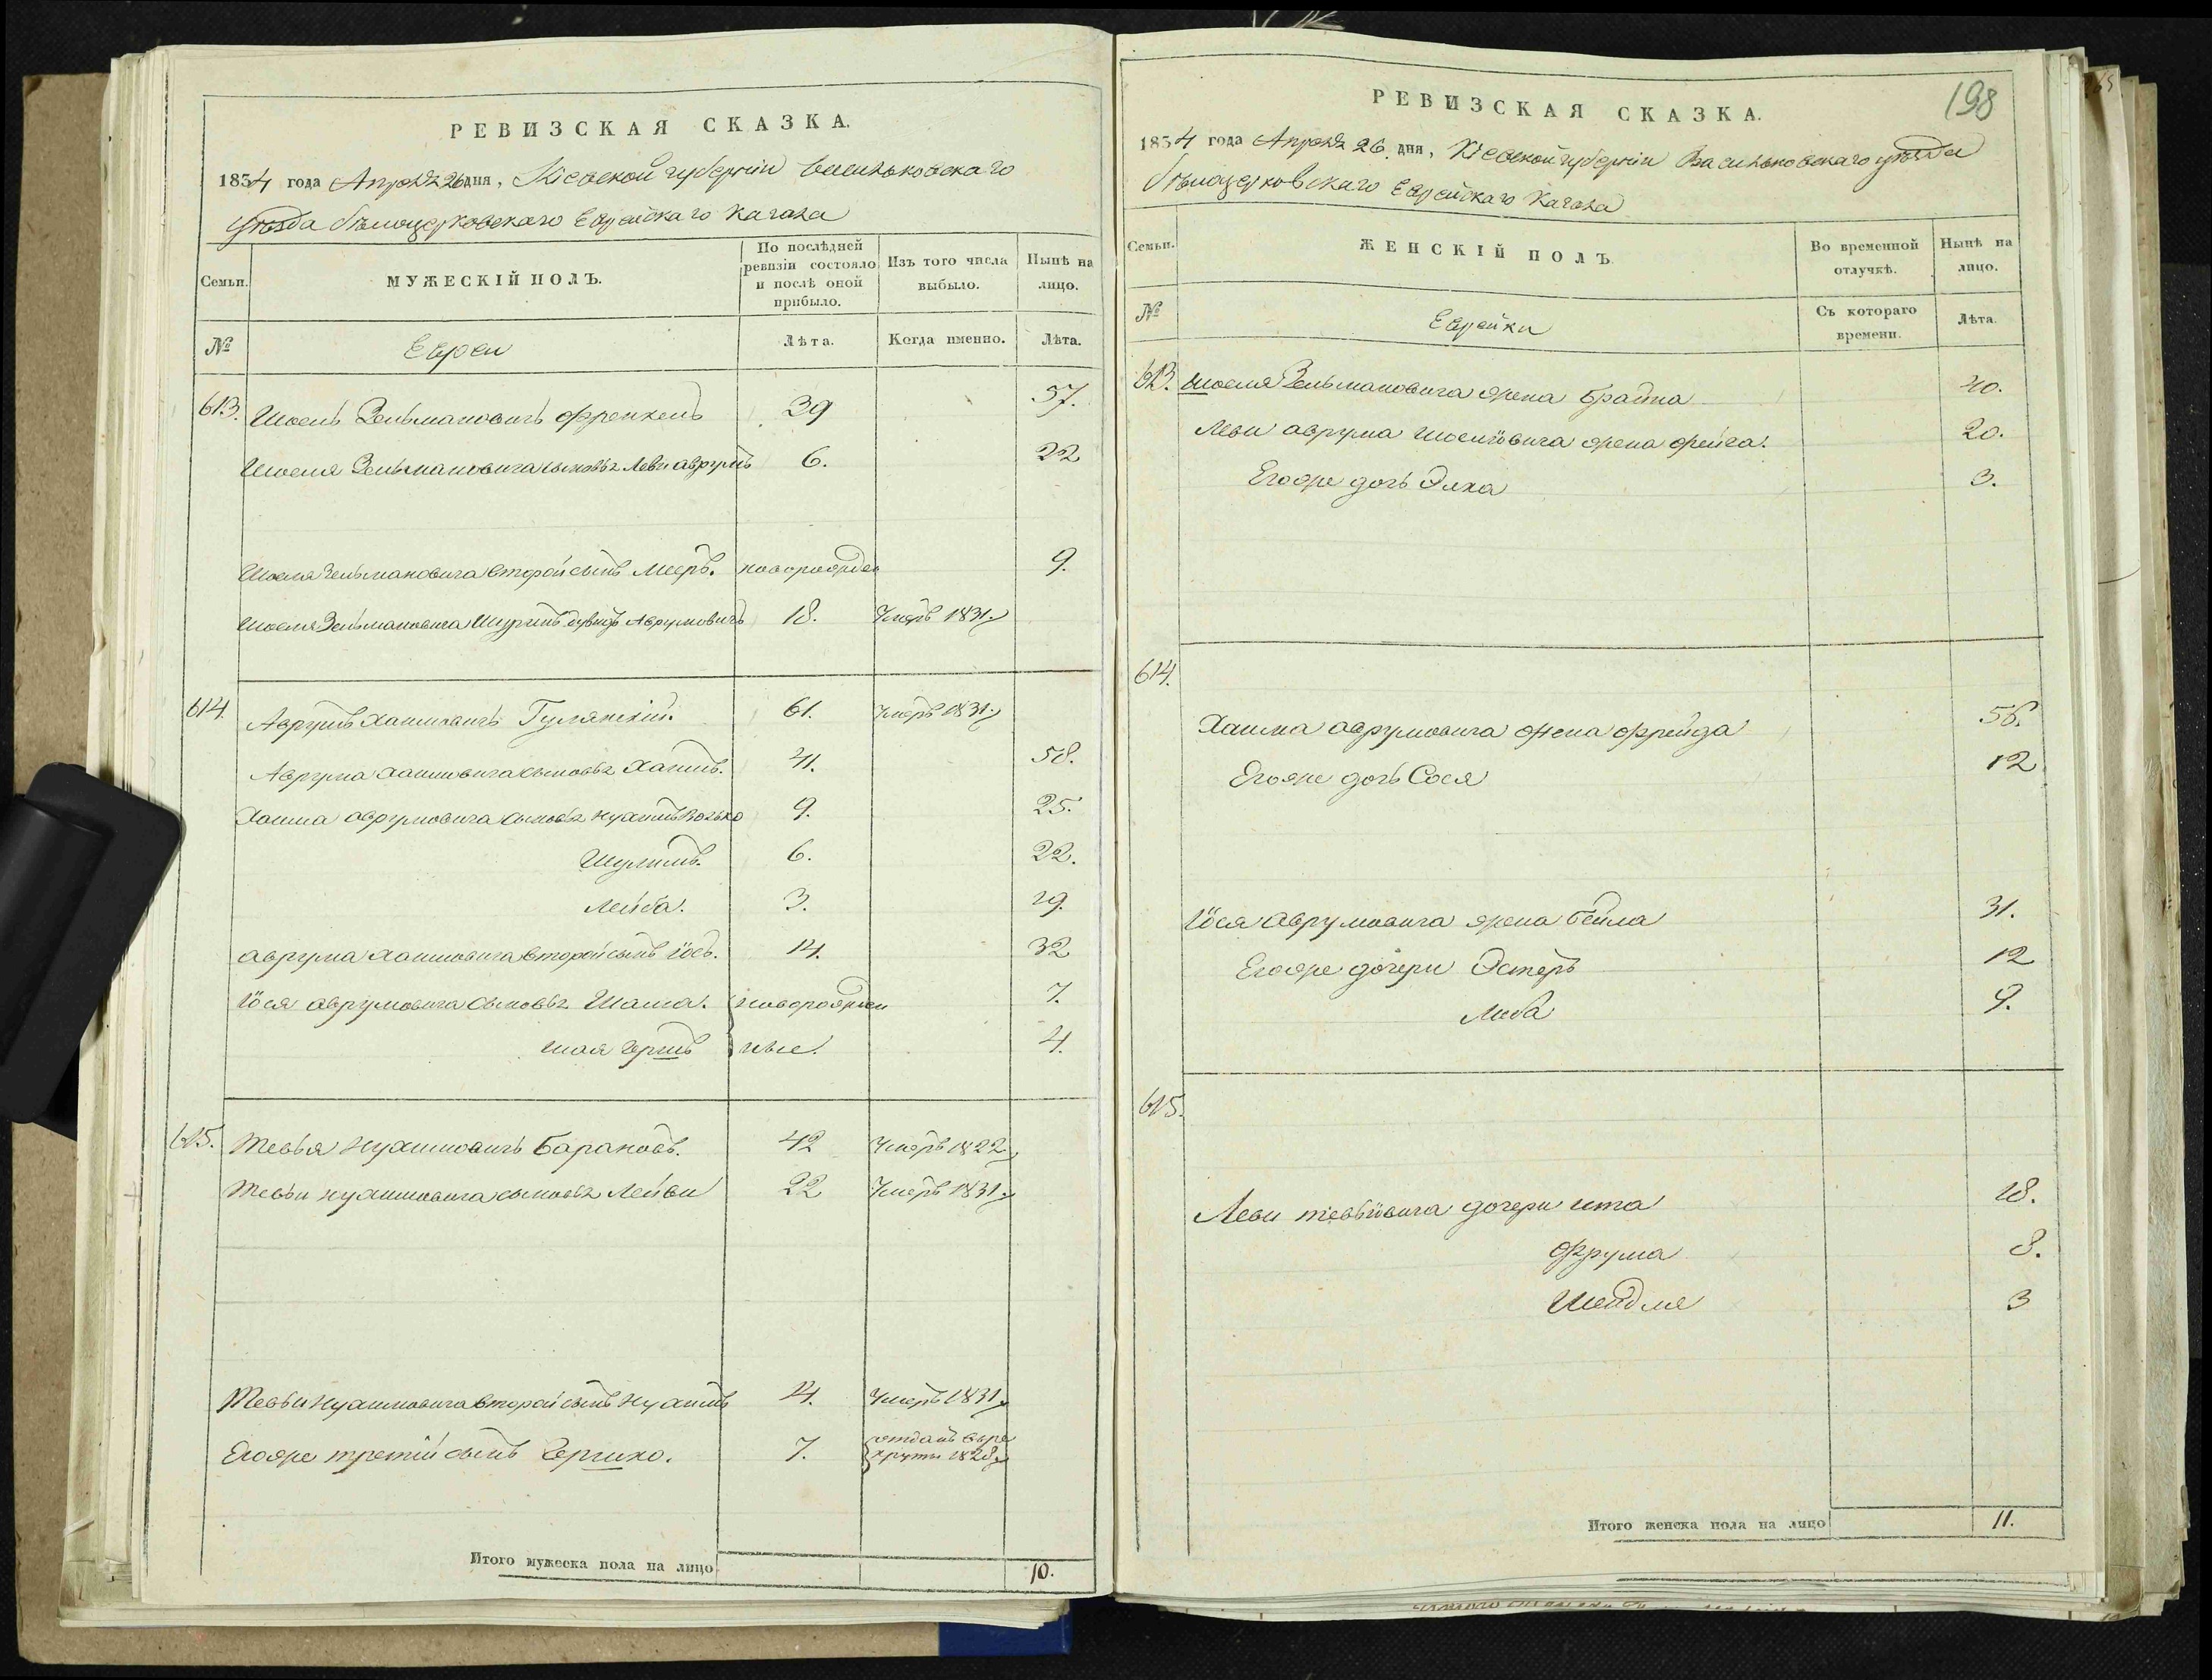 РЕВИЗСКАЯ СКАЗКА.
1834 года Апрѣля 26 дня, Кіевской губерніи Васильковскаго
уѣзда бѣлоцерковскаго Еврейскаго Кагала
Семьи.
МУЖЕСКІЙ ПОЛЪ.
По послѣдней ревизіи состояло и послѣ оной прибыло.
Изъ того числа выбыло.
Нынѣ на лицо.
№
Евреи
Лѣта.
Когда именно.
Лѣта.
613. Шоель Зельмановичъ Френкель 39 57.
Шоеля Зельмановича сыновья Леви аврумъ 6. 22
Шоеля Зельмановича второй сынъ Мееръ. новорожден 9.
Шоеля Зельмановича Шуринъ Аврумовичъ 18. Умеръ 1831.
614. Аврумъ Хаимовичъ Гулянскій. 61. Умеръ 1831.
Аврума Хаимовича сыновья Хаимъ. 41. 58.
Хаима аврумовича сыновья нухимъ Волько 9. 25.
Шулимъ. 6. 22.
Лейба. 3. 19.
Аврума Хаимовича второй сынъ Іось. 14. 32
Іося аврумовича сыновья Шама. новорожден 7.
шая Гершъ ные. 4.
615. Тевья Нухимовичъ Барановъ. 42 Умеръ 1822
Тевьи нухимовича сыновья Лейви 22 Умеръ 1831.
Тевьи Нухимовича второй сынъ Нухимъ 14. Умеръ 1831
Егоже третій сынъ Гершко. 7. отданъ въ ре
круты 1828
Итого мужеска пола на лицо 10.
198
РЕВИЗСКАЯ СКАЗКА.
1834 года Апрѣля 26 дня, Кіевской губерніи Васильковскаго уѣзда
бѣлоцерковскаго Еврейскаго Кагала
Семьи.
ЖЕНСКІЙ ПОЛЪ.
Во временной отлучкѣ.
Нынѣ на лицо.
№
Еврейки
Съ котораго времени.
Лѣта.
613. Шоеля Зельмановича жена Брайна 40.
Леви аврума Шоелiовича жена Фейга. 20.
Егоже дочь Элка 3.
614.
Хаима аврумовича жена Фрейда 56.
Егоже дочь Сося 12
Іося Аврумовича жена Бейла 31.
Егоже дочери Эстеръ 12
Либа 9.
615.
Леви тевьiовича дочери ита 18.
Фрума 8.
Шейдля 3
Итого женска пола на лицо 11.